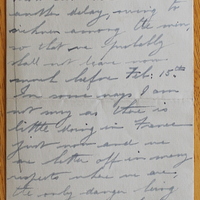 another delay, owing to
sickness among the men,
so that we probably
shall not leave
much before Feb. 15th
In some ways I am
not sorry as there is
little doing in France
just now and we
are better off in many
respects where we are.
the only danger being